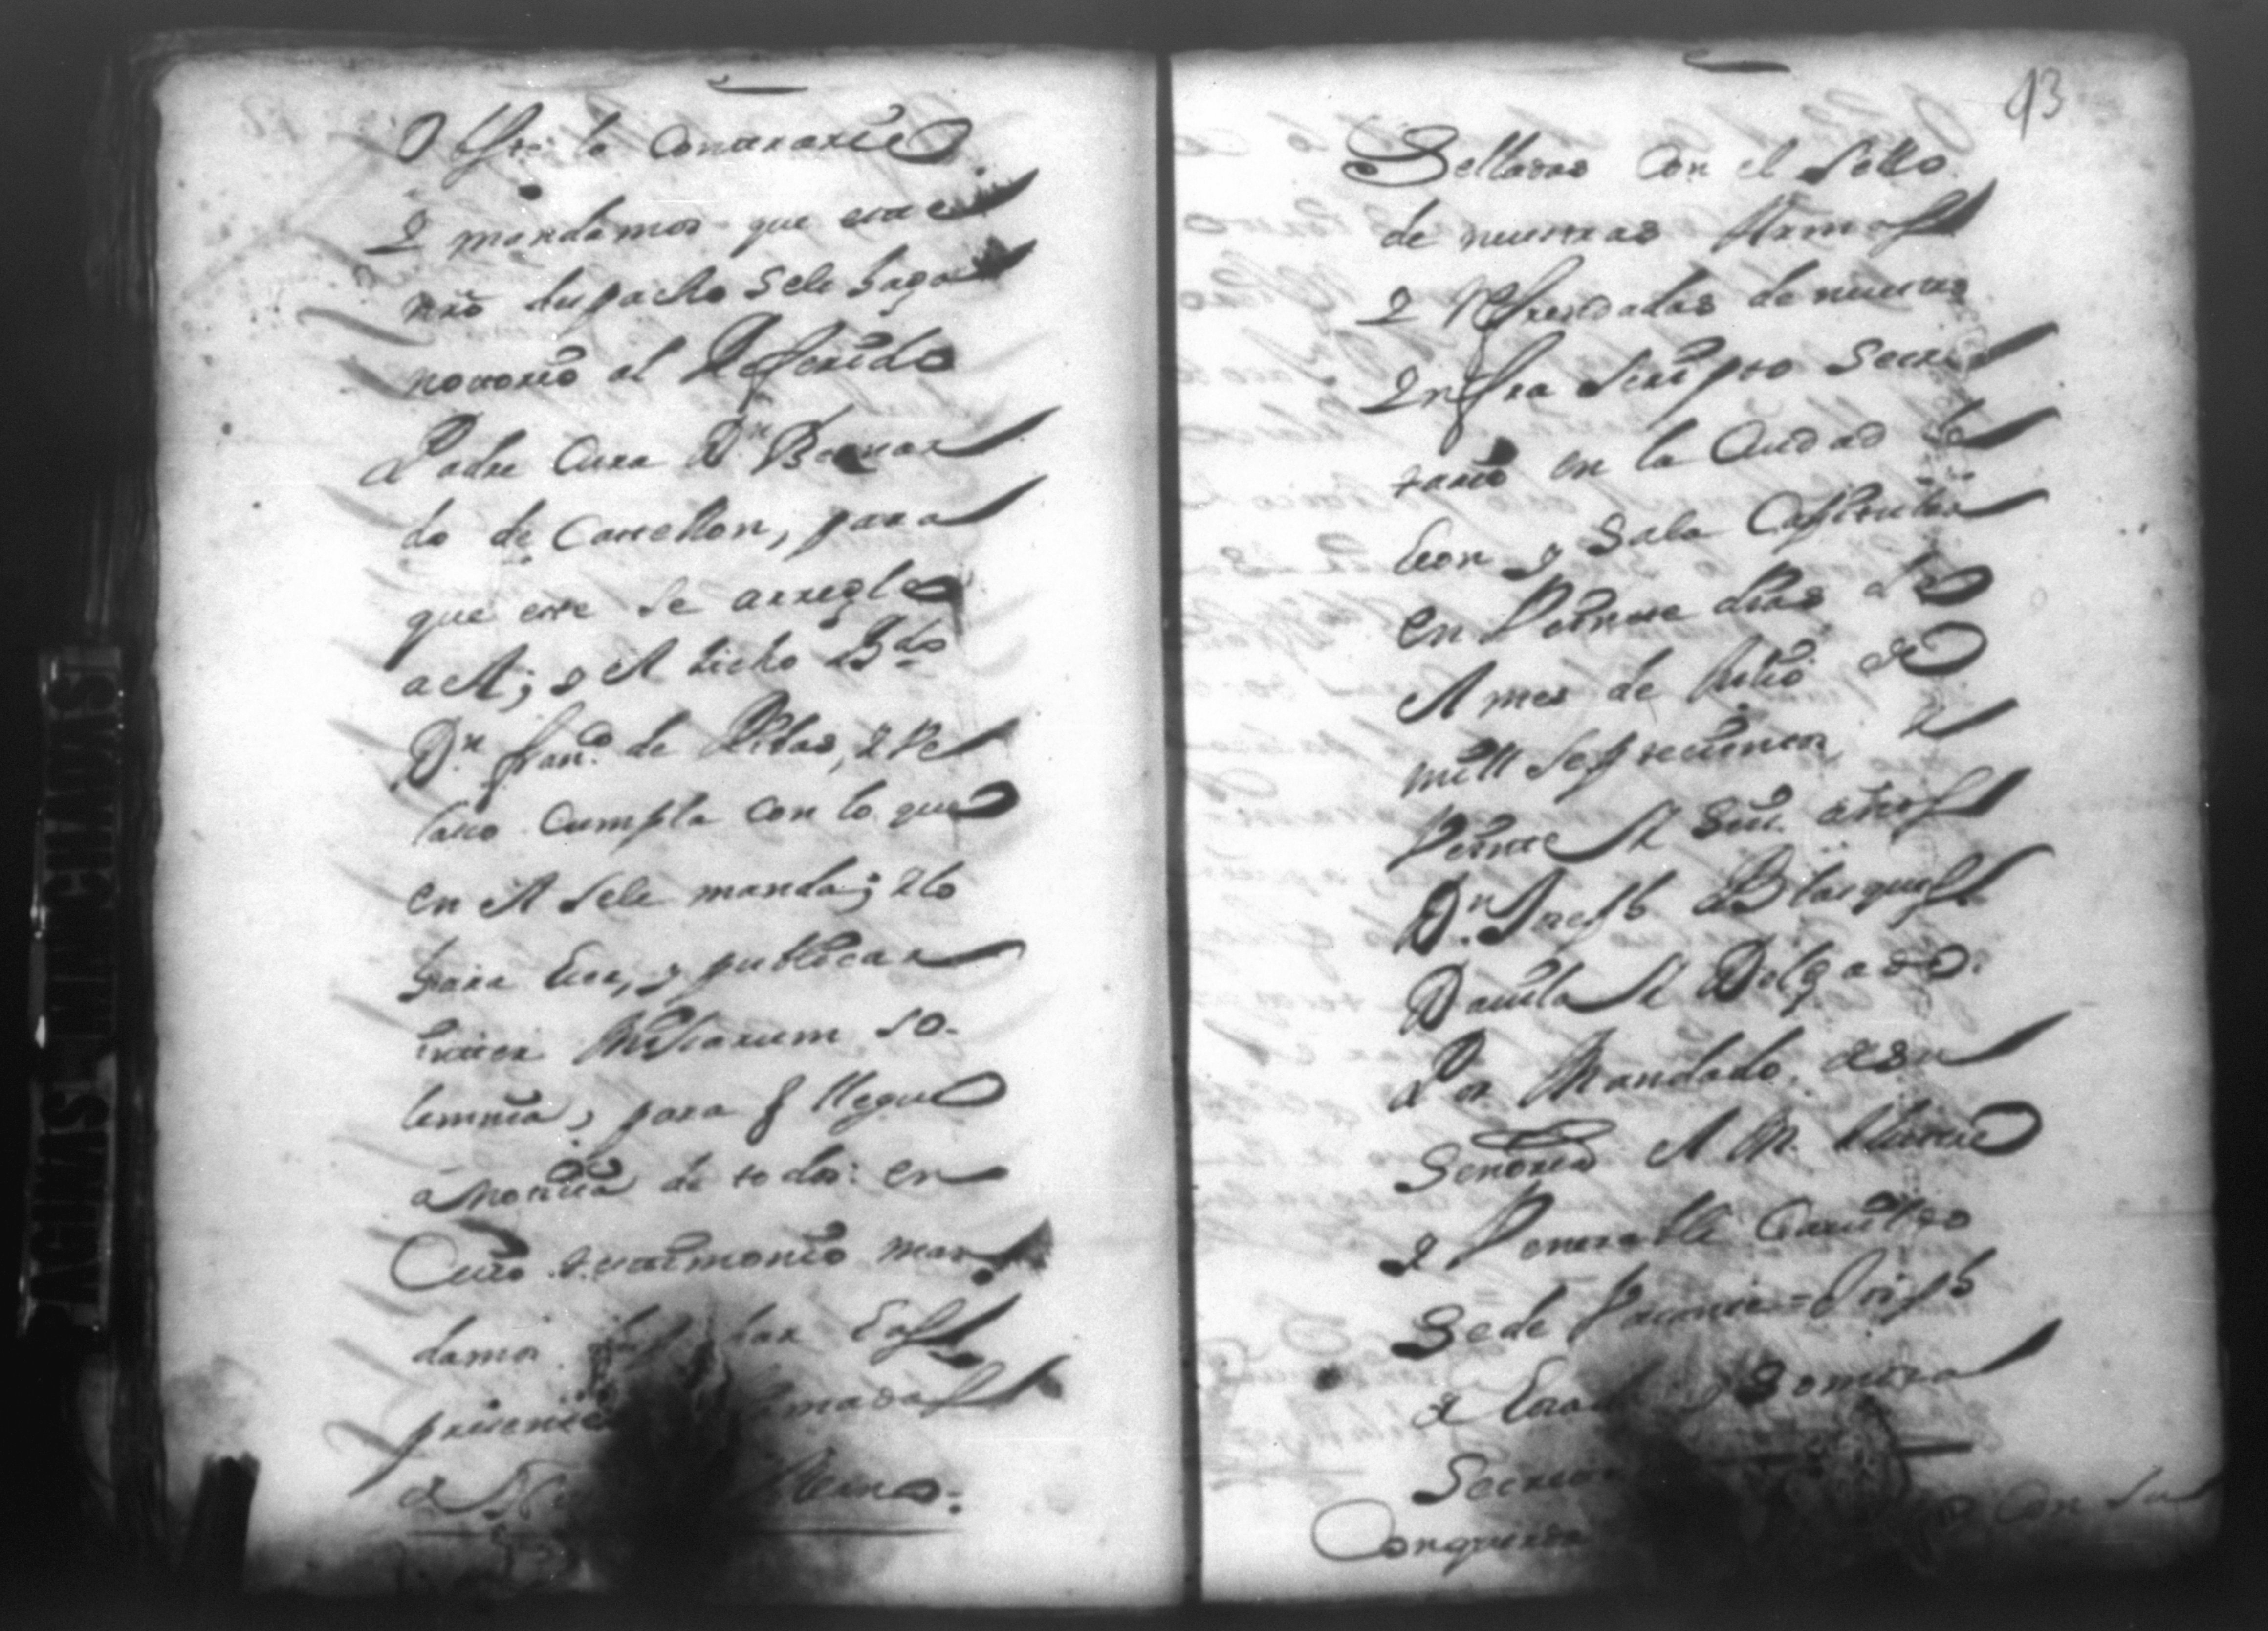 la contrario
Y mandamos que este
nro despacho se le haga
notorio al Referido
Padre Cura Dn Bernar
do de Castellon, para
que este se arregle
a el; y el dicho Bdo
Dn Franco de Vilas,
cumpla con lo que
en el se le manda; y lo
hara leer, y publicar
inter Missarum so-
lemnia, para q llegue
a noticia de todos: en
Cuio testimonio man
damos dar las
presentes firmadas
de
Selladas con el sello
de nuestras Armas
Y Refrendadas de nuestro
Infra scripto Secre
tario en la Ciudad de
Leon y Sala Capitular
en Veinte dias de
el mes de Julio de
mill septecientos y
Veinte y seis años
Dn Joseph Blasques
Davila y Delgado.
Por Mandado de su
Señoria el M. Illustre
Y Venerable Cavildo
Sede Vacante = Joseph
de y Somoza
Secretario
Conquerda con su
93
PAGINAS MANCHADAS